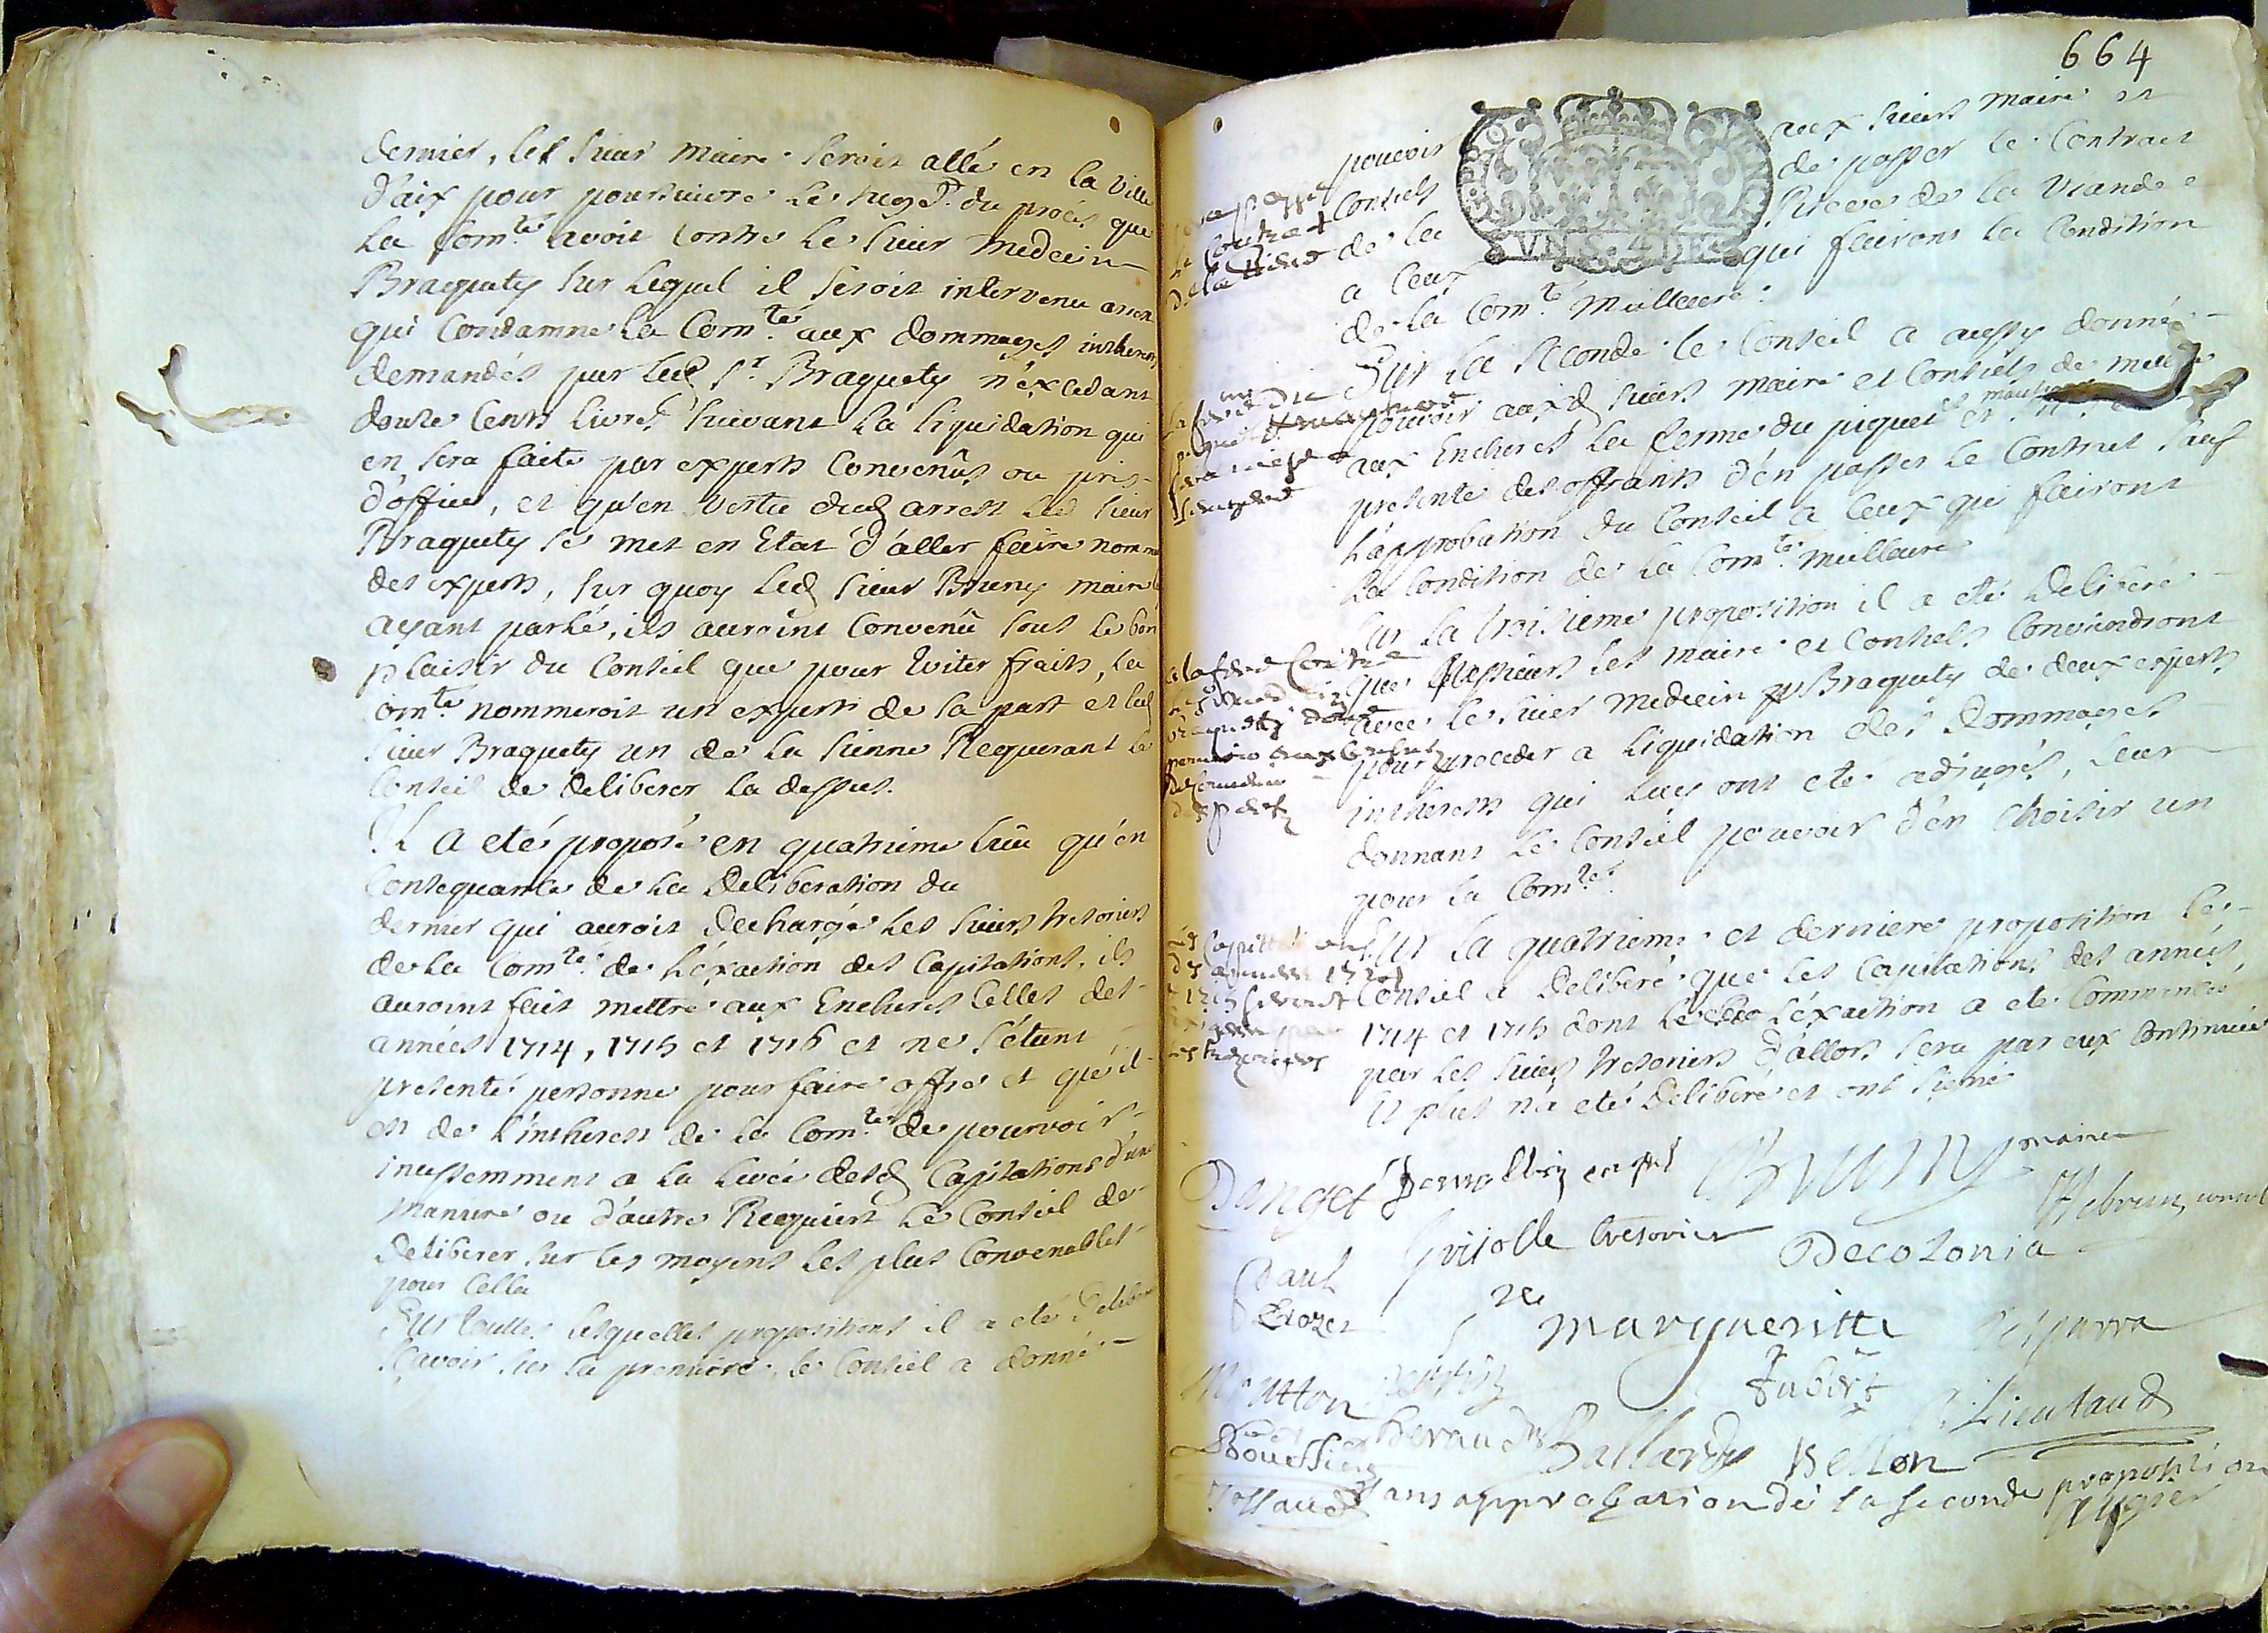 dernier, led sieur maire seroit allé en la ville
d'aix pour poursuivre le jugemt. du procés que
la Comte. avoit contre le sieur medecin
Braquety sur lequel il seroit intervenu arrest
qui condamne la Comte. aux dommages intherests
demandés par led sr. Braquety n'excedant
douze cents livres suivant la liquidation qui
en sera faite par experts convenûs ou pris
d'office, et qu'en vertu dud arrest led sieur
Braquety se met en Etat d'aller faire nommer
des experts, sur quoy led sieur Bruny maire
ayant parlé, ils auroint convenû sous le bon
plaisir du Conseil que pour Eviter fraits, la
omte. nommeroit un expert de sa part et led
sieur Braquety un de la sienne Requerant le
Conseil de deliberer la dessus.
Il a eté proposé en quatrieme lieu qu'en
Consequance de la deliberation du
dernier qui auroit dechargé les sieurs tresoriers
de la Comte. de l'éxaction des Capitations, ils
auroint fait mettre aux Encheres Celles des
années 1714, 1715 et 1716 et ne s'étant
presenté personne pour faire offre et qu'il
est de l'intherest de la Comte. de pourvoir
incessemment a la levée desd Capitations d'une
maniere ou d'autre Requiert le Conseil de
deliberer sur les moyens les plus Convenables
pour Cella
Sur touttes lesquelles propositions il a eté deliberé
sçavoir sur la premiere, le Conseil a donné
664
pouvoir aux sieurs maire et
Consuls de passer le Contract
de la Rieve de la viande
a Ceux qui fairont la Condition
de la Comte. meilleure.
VN S. 4 D.
Sur la seconde le Conseil a aussy donné
pouvoir auxd sieurs maire et Consuls de mettre
aux Encheres la ferme du piquet et
presente des offrants d'en passer le Contract sauf
l'approbation du Conseil a Ceux qui fairont
la Condition de la Comte. meilleure
Sur la troisieme proposition il a eté deliberé
que lesd sieurs les maire et Consuls Conviendront
avec le sieur medecin Braquety de deux experts
pour proceder a liquidation des dommages
intherests qui luy ont eté adjugés, leur
donnant le Conseil pouvoir d'en Choisir un
pour la Comte.
Sur la quatrieme et derniere proposition le
Conseil a deliberé que les Capitations des années
1714 et 1715 dont l'éxaction a eté Commencée
par les sieurs tresoriers d'allors sera par eux Continuée
Et plus n'a eté deliberé et ont signé
Danget Bruny maire
Grisolle tresorier Decolonia
Paul
Margueritte
Jubert
Moutton
Ballardy Bellon Lieutaud
sans approbation de la seconde proposition